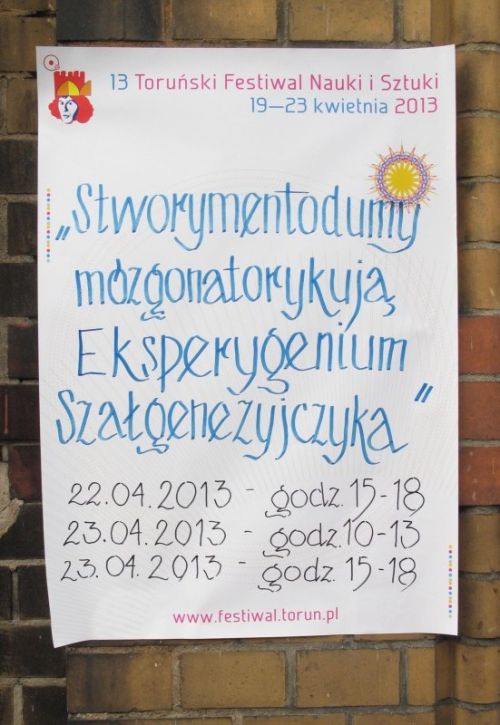 13 Toruński Festiwal Nauki i Sztuki
19—23 kwietnia 2013
„Stworymentodumy
mózgonatorykują
Eksperygenium
Szałgenezyjczyka”
22.04.2013 - godz. 15-18
23.04.2013 - godz. 10-13
23.04.2013 - godz. 15-18
www.festiwal.torun.pl